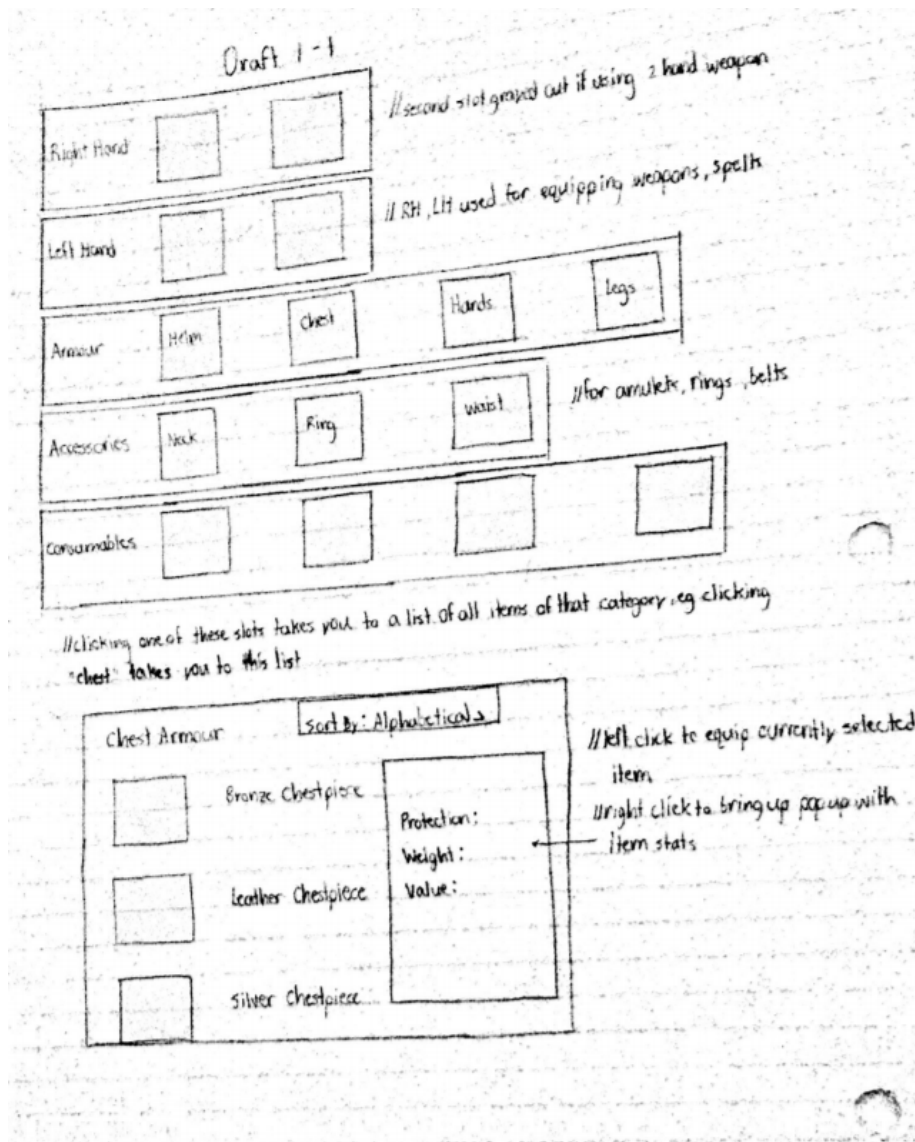 Draft 1-1
Right Hand
//second slot greyed out if using 2 hand weapon
Left Hand
//RH, LH used for equipping weapons, spells
Armour Helm Chest Hands Legs
Accessories Neck Ring Waist
//for amulets, rings, belts
Consumables
//clicking one of these slots takes you to a list of all items of that category, eg clicking
"chest" takes you to this list
Chest Armour
Sort By: Alphabetical
Bronze Chestpiece
Leather Chestpiece
Silver Chestpiece
Protection:
Weight:
Value:
//left click to equip currently selected
item
//right click to bring up pop up with
item stats